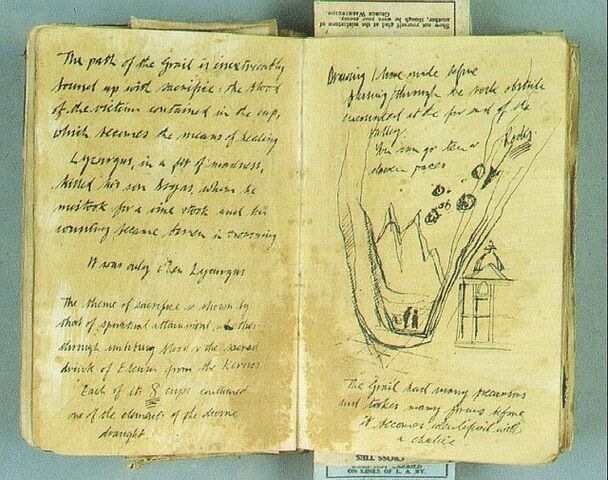 Show not yourself glad at the misfortune of
another, though he were your enemy.
GEORGE WASHINGTON
The path of the Grail is inextricably
bound up with sacrifice: the blood
of the victim contained in the cup,
which becomes the means of healing
Lycurgus, in a fit of madness,
killed his son Dryas, whom he
mistook for a vine stock and his
country became barren in mourning
It was only when Lycurgus
The theme of sacrifice is shown by
that of spiritual attainment, whether
through imbibing blood or the sacred
drink of Eleusis from the Kernos
Each of its 8 cups contained
one of the elements of the divine
draught
Drawing I have made before
passing through the rock obstacle
encountered at the far end of the
valley.
You can go ten or
eleven paces
Rocks
The Grail had many precursors
and takes many forms before
it becomes identified with
a chalice
CROSS TIES
NOT CARRIED
ON LINES OF L. A. RY.